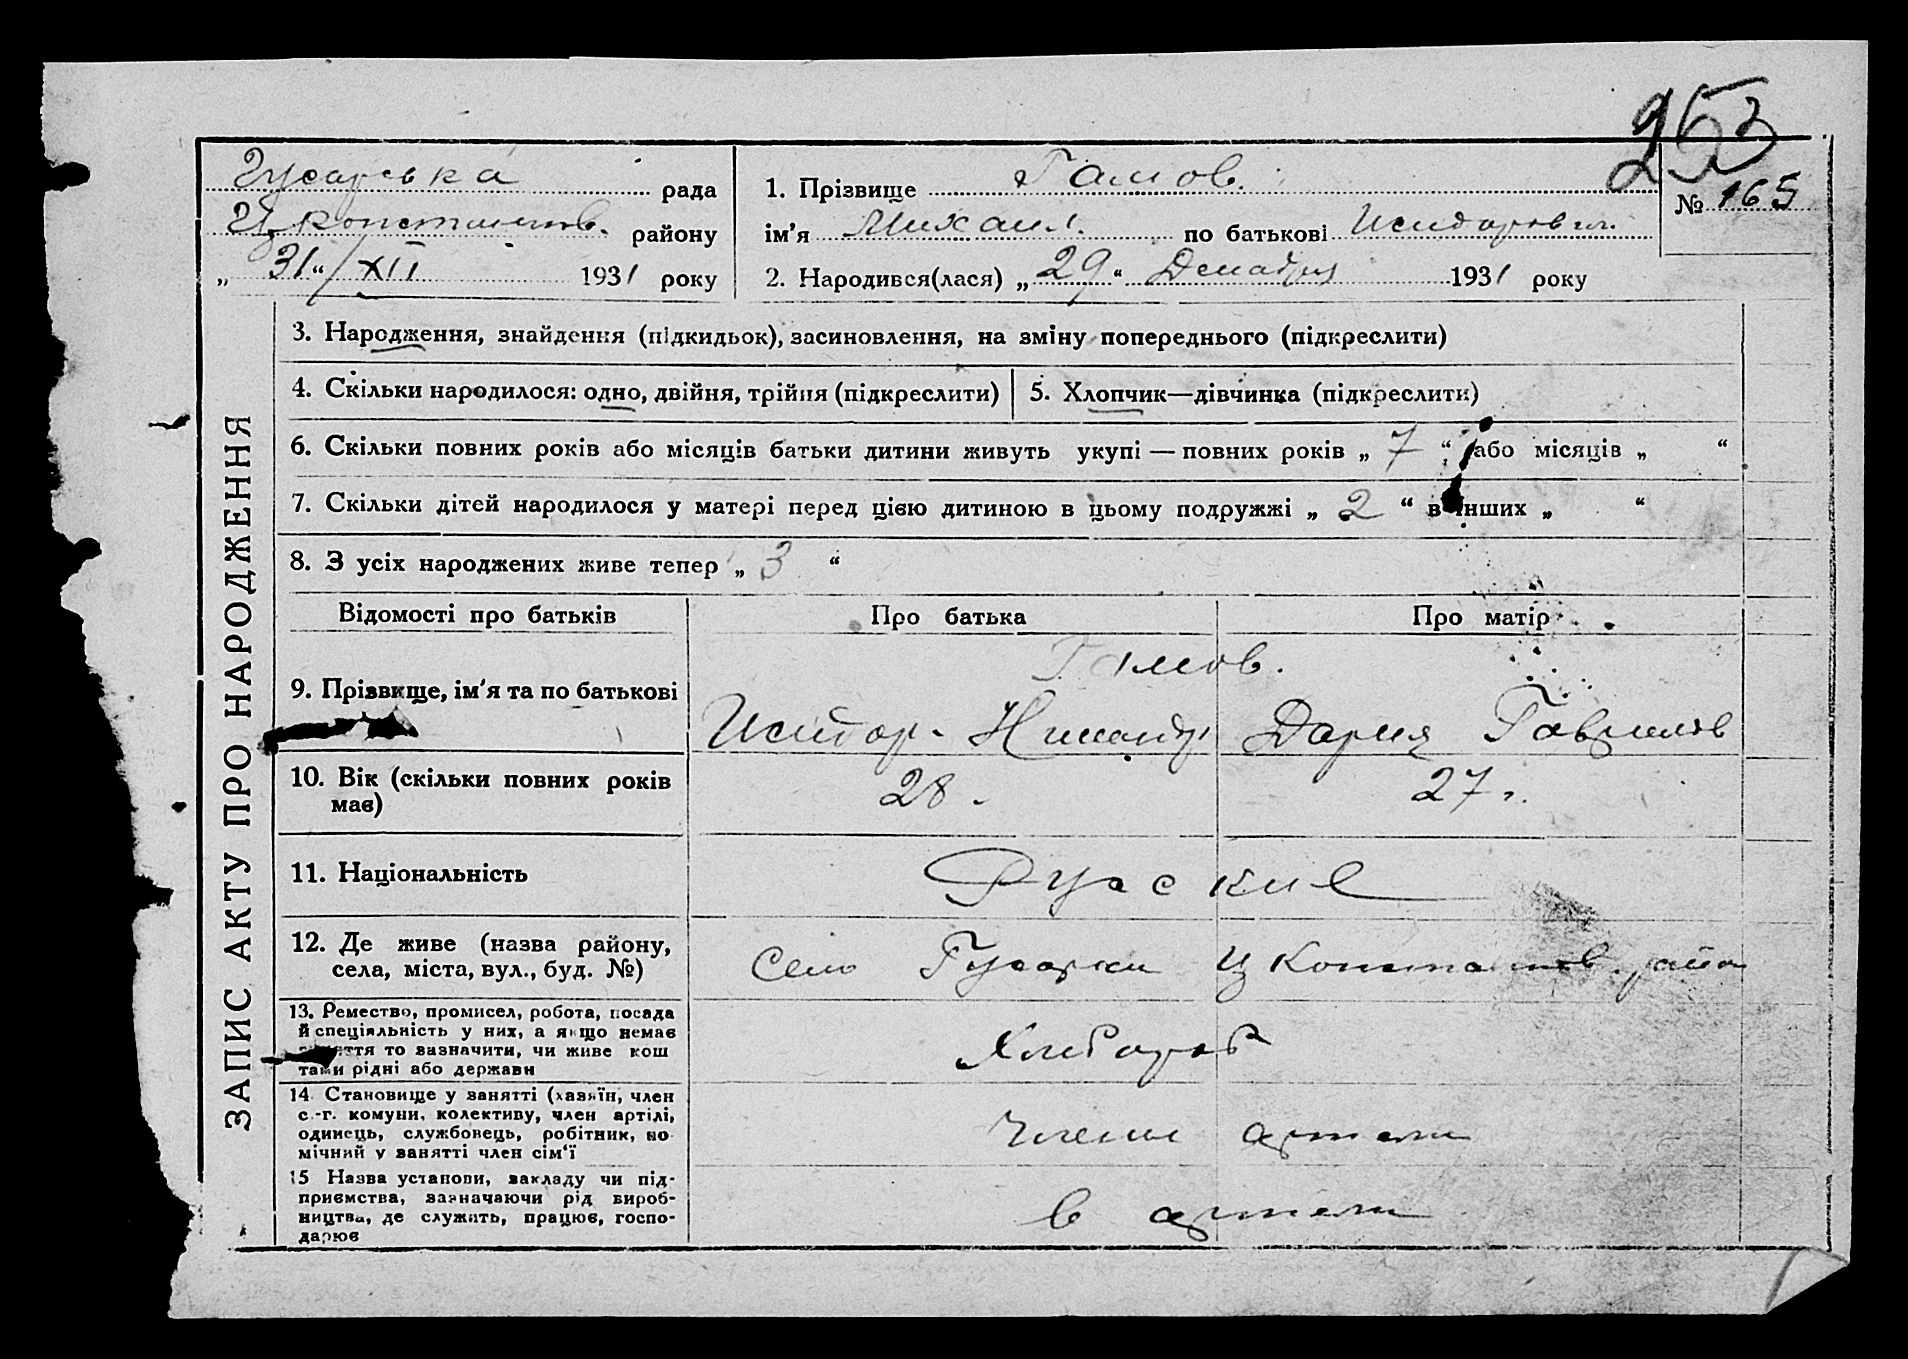 253
Гусарська рада
Ц константинов. району
„ 31 “ / XII 1931 року
1. Прізвище Гамов.
ім'я Михаил. по батькові Исидорович.
2. Народився(лася) „ 29 “ Декабря 1931 року
№ 165
3. Народження, знайдення (підкидьок), засиновлення, на зміну попереднього (підкреслити)
4. Скільки народилося: одно, двійня, трійня (підкреслити)
5. Хлопчик—дівчинка (підкреслити)
6. Скільки повних років або місяців батьки дитини живуть укупі — повних років „ 7 “ або місяців „ “
7. Скільки дітей народилося у матері перед цією дитиною в цьому подружжі „ 2 “ в інших „ “
8. З усіх народжених живе тепер „ 3 “
ЗАПИС АКТУ ПРО НАРОДЖЕННЯ
Відомості про батьків Про батька Про матір
9. Прізвище, ім'я та по батькові
Гамов.
Исидор. Дария Гаврилов
10. Вік (скільки повних років
має)
28. 27 г.
11. Національність
Русские
12. Де живе (назва району,
села, міста, вул., буд. №)
Село Гусарки Ц Константинов. район
13. Ремество, промисел, робота, посада
й спеціяльність у них, а якщо немає
заняття то зазначити, чи живе кош
тами рідні або держави
Хлебороб
14 Становище у занятті (хазяїн, член
с.-г. комуни, колективу, член артілі,
одинець, службовець, робітник, по
мічний у занятті член сім'ї
Члени артели
15 Назва установи, закладу чи під-
приємства, зазначаючи рід вироб-
ництва, де служить, працює, госпо-
дарює
в артели